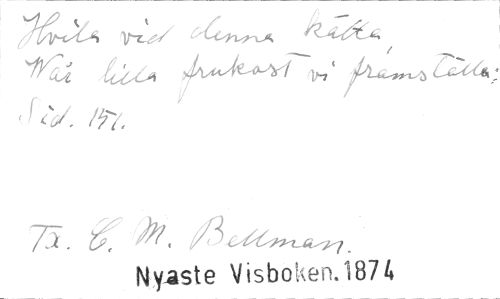 Hvila vid denna kätta,
Wår lilla frukost vi framställa:
Sid. 151.
Tx. C. M. Bellman.
Nyaste Visboken. 1874